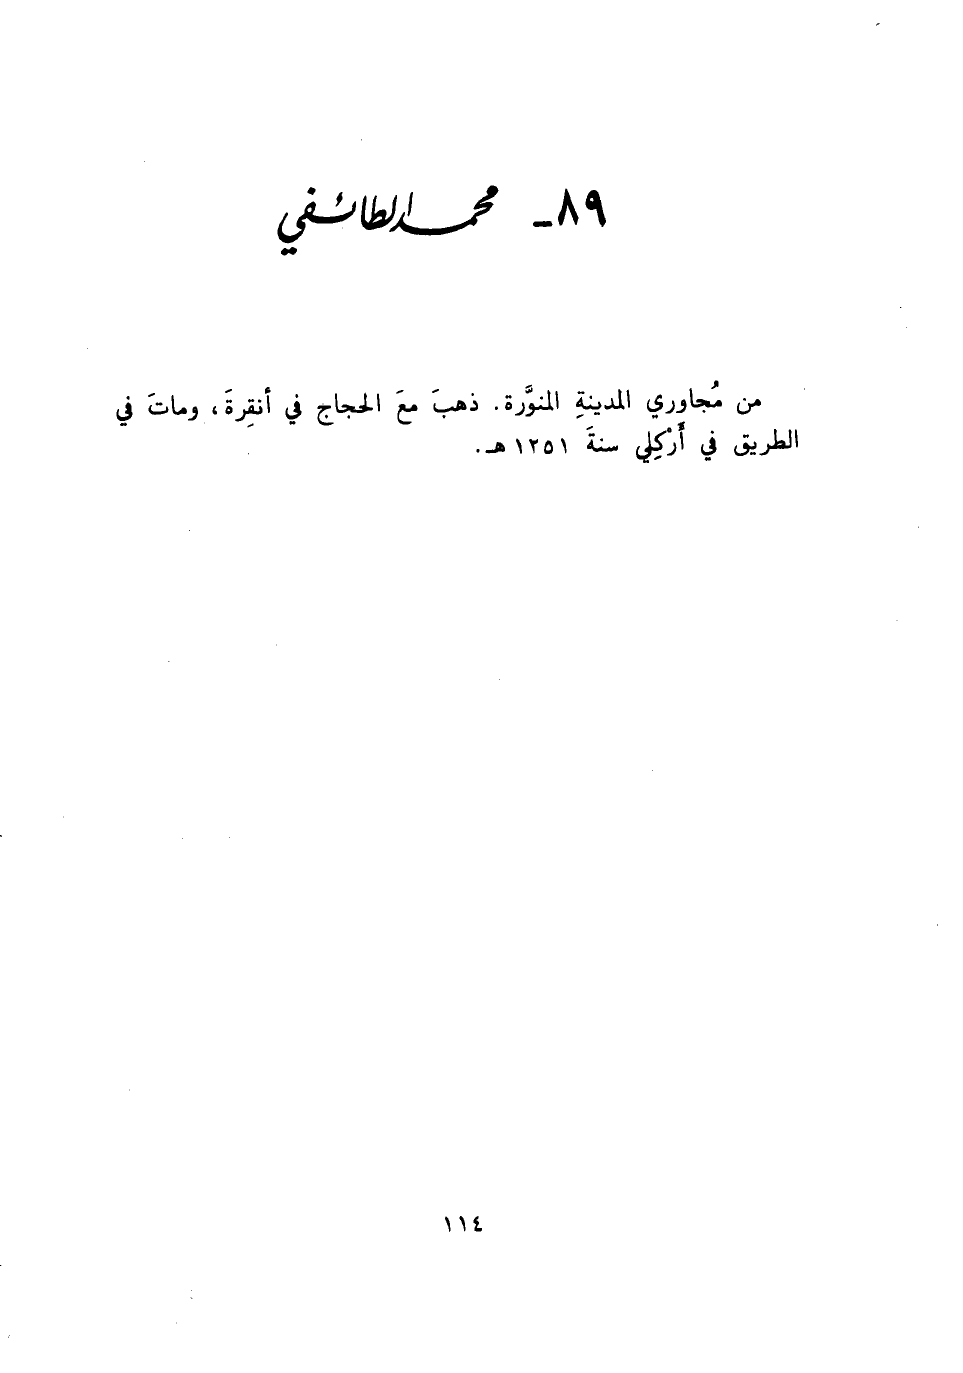 ٨٩ - محمد الطائفي
من مُجاوري المدينةِ المنوَّرة. ذهبَ معَ الحجاج في أنقِرةَ، وماتَ في
الطريق في أَرْكِلي سنةَ ١٢٥١ هـ.
١١٤